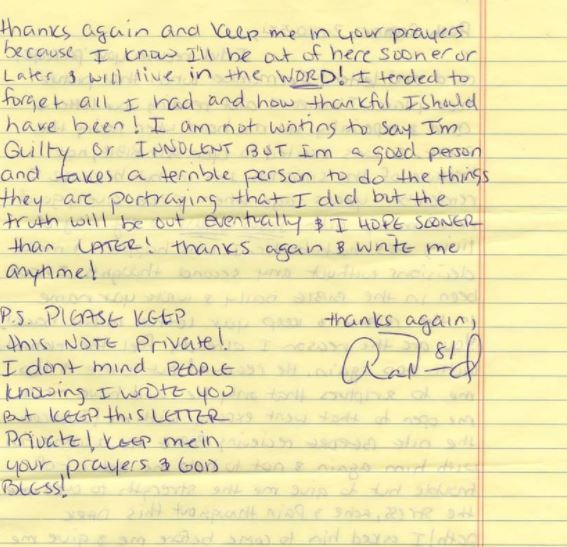 thanks again and keep me in your prayers
because I know I'll be out of here sooner or
Later & will live in the WORD! I tended to
forget all I had and how thankful I should
have been! I am not writing to say I'm
Guilty or INNOCENT BUT Im a good person
and takes a terrible person to do the things
they are portraying that I did but the
truth will be out eventually & I HOPE SOONER
than LATER! thanks again & write me
anytime!
P.S. PLEASE KEEP
this NOTE Private!
I dont mind PEOPLE
knowing I wrote you
BUT KEEP this LETTER
Private! KEEP me in
your prayers & GOD
BLESS!
thanks again,
81